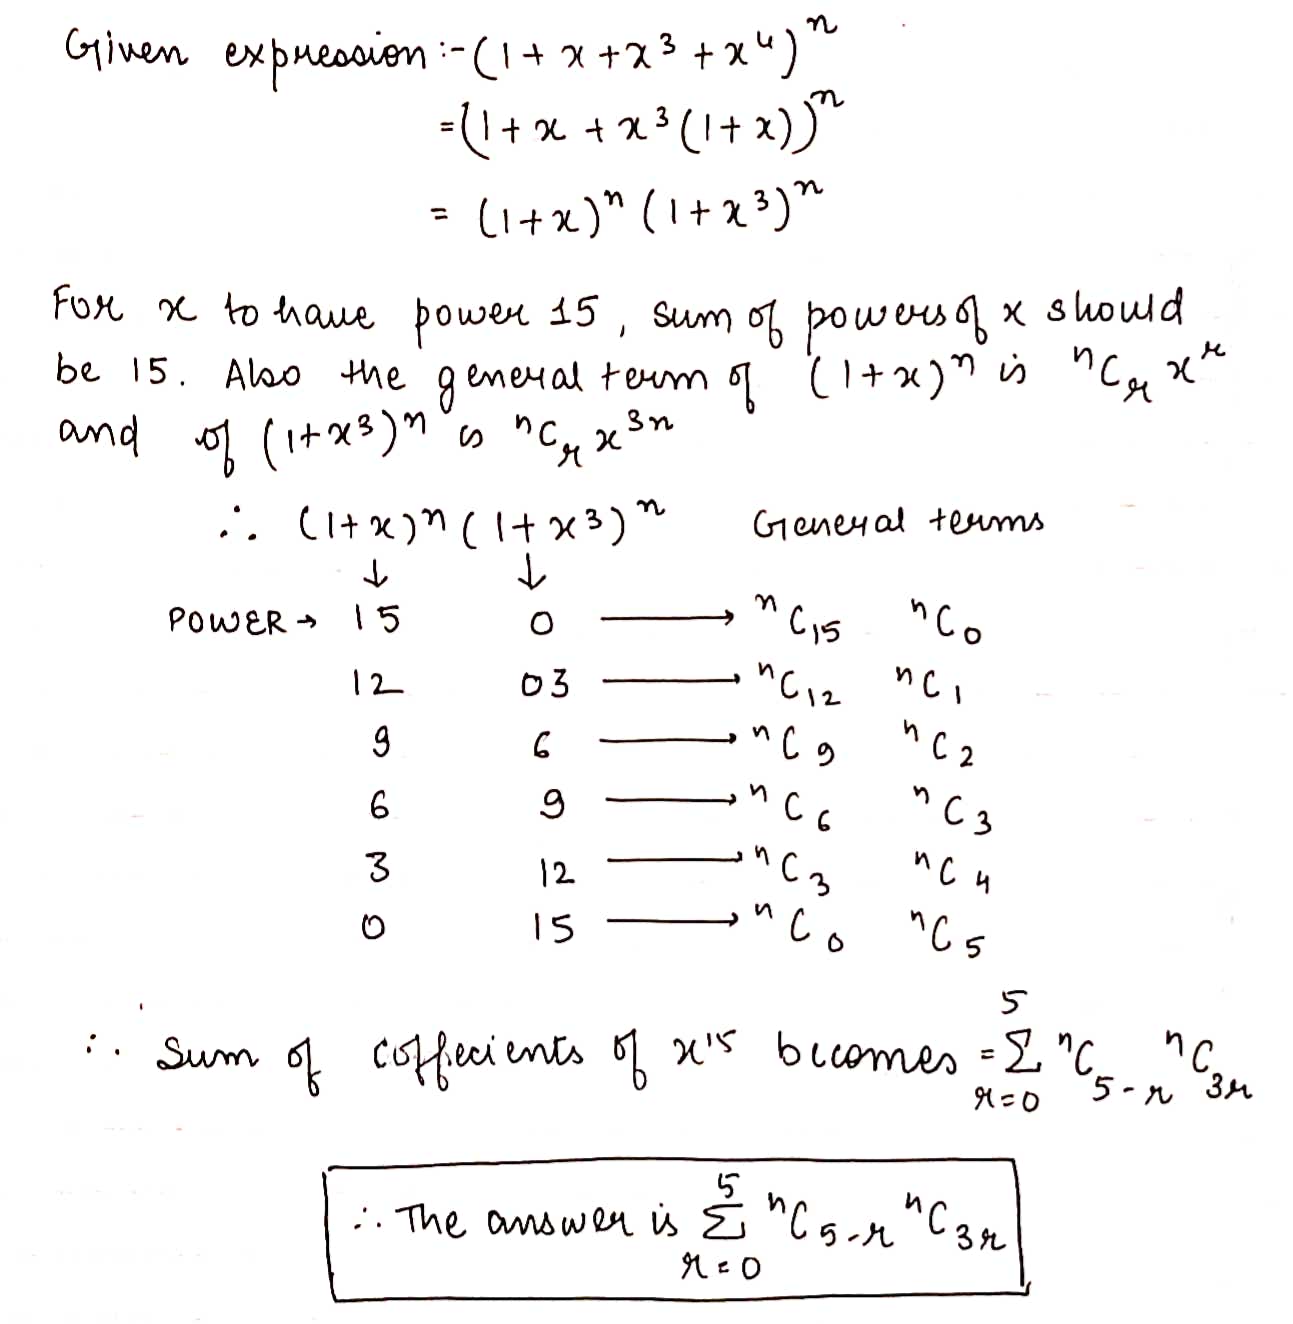 Given expression :- (1 + x + x³ + x⁴)ⁿ
= (1 + x + x³ (1 + x))ⁿ
= (1+x)ⁿ (1 + x³)ⁿ
For x to have power 15, sum of powers of x should
be 15. Also the general term of (1+x)ⁿ is ⁿCᵣ xʳ
and of (1+x³)ⁿ is ⁿCᵣ x³ⁿ
∴ (1+x)ⁿ (1+x³)ⁿ General terms
↓ ↓
POWER → 15 0 ⟶ ⁿC₁₅ ⁿC₀
12 03 ⟶ ⁿC₁₂ ⁿC₁
9 6 ⟶ ⁿC₉ ⁿC₂
6 9 ⟶ ⁿC₆ ⁿC₃
3 12 ⟶ ⁿC₃ ⁿC₄
0 15 ⟶ ⁿC₀ ⁿC₅
∴ Sum of coffecients of x¹⁵ becomes = 5∑r=0 ⁿC₅₋ᵣ ⁿC₃ᵣ
∴ The answer is 5∑r=0 ⁿC₅₋ᵣ ⁿC₃ᵣ